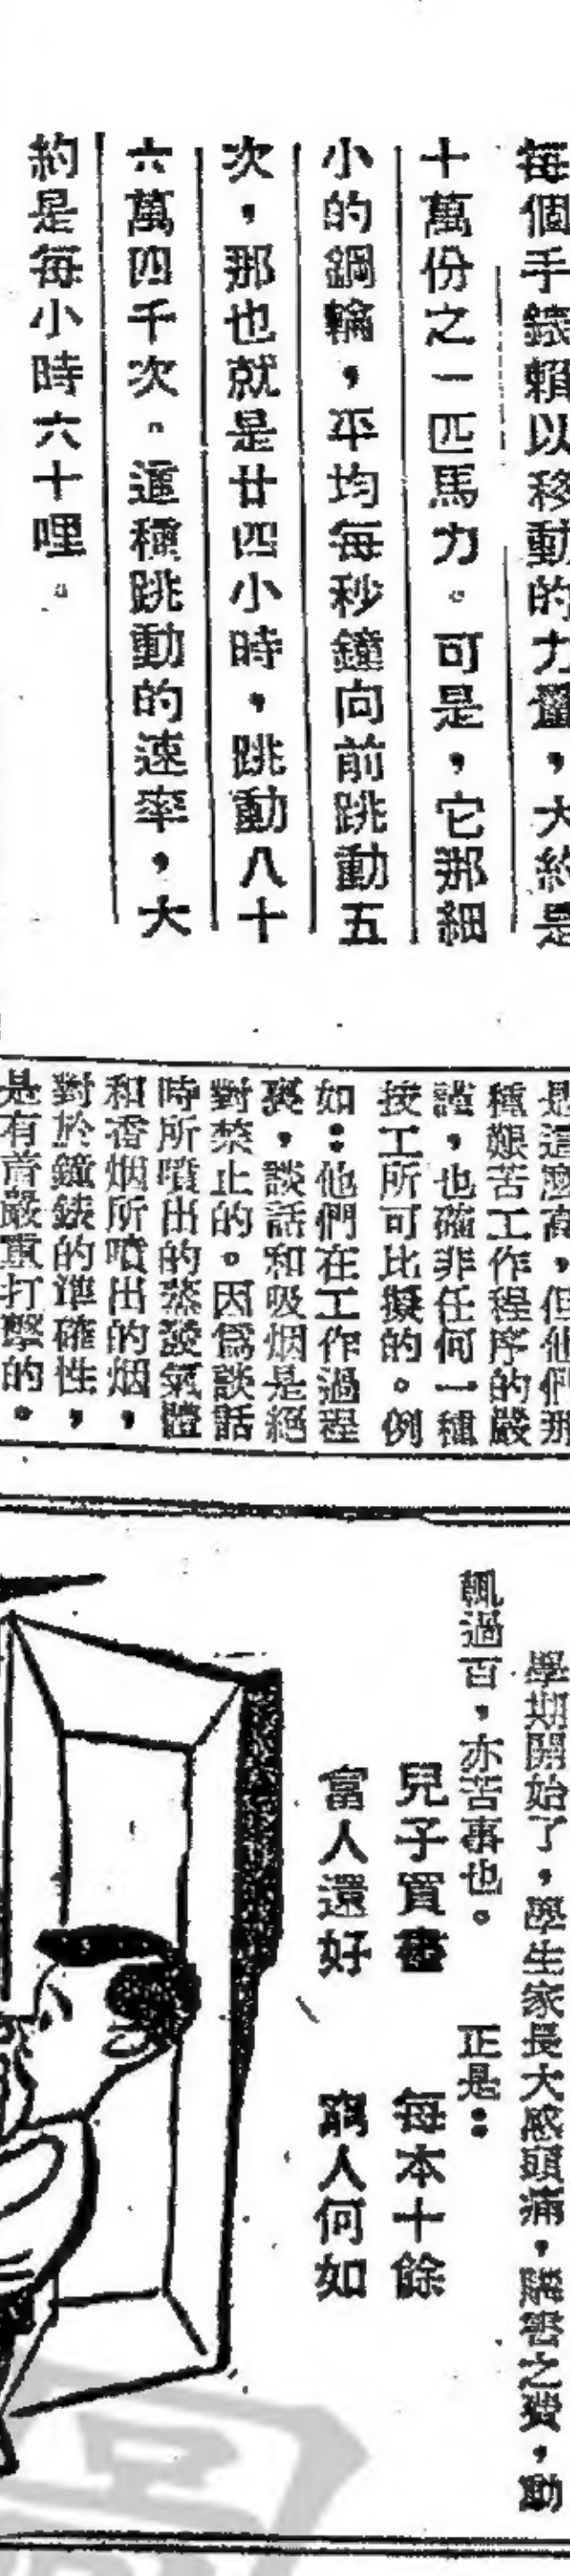 每個手錶賴以移動的力量，大約是
十萬份之一匹馬力。可是，它那細
小的鋼輪，平均每秒鐘向前跳動五
次，那也就是廿四小時，跳動八十
六萬四千次。這種跳動的速率，大
約是每小時六十哩。
是這麼高，但他們那
種艱苦工作程序的嚴
謹，也確非任何一種
技工所可比擬的。例
如：他們在工作過程
裏，談話和吸烟是絕
對禁止的。因爲談話
時所噴出的蒸淡氣體
和香烟所噴出的烟，
對於鐘錶的準確性，
是有着嚴重打擊的。
學期開始了，學生家長大感頭痛，購書之費，動
輒過百，亦苦事也。 正是：
兒子買書 每本十餘
富人還好 窮人何如